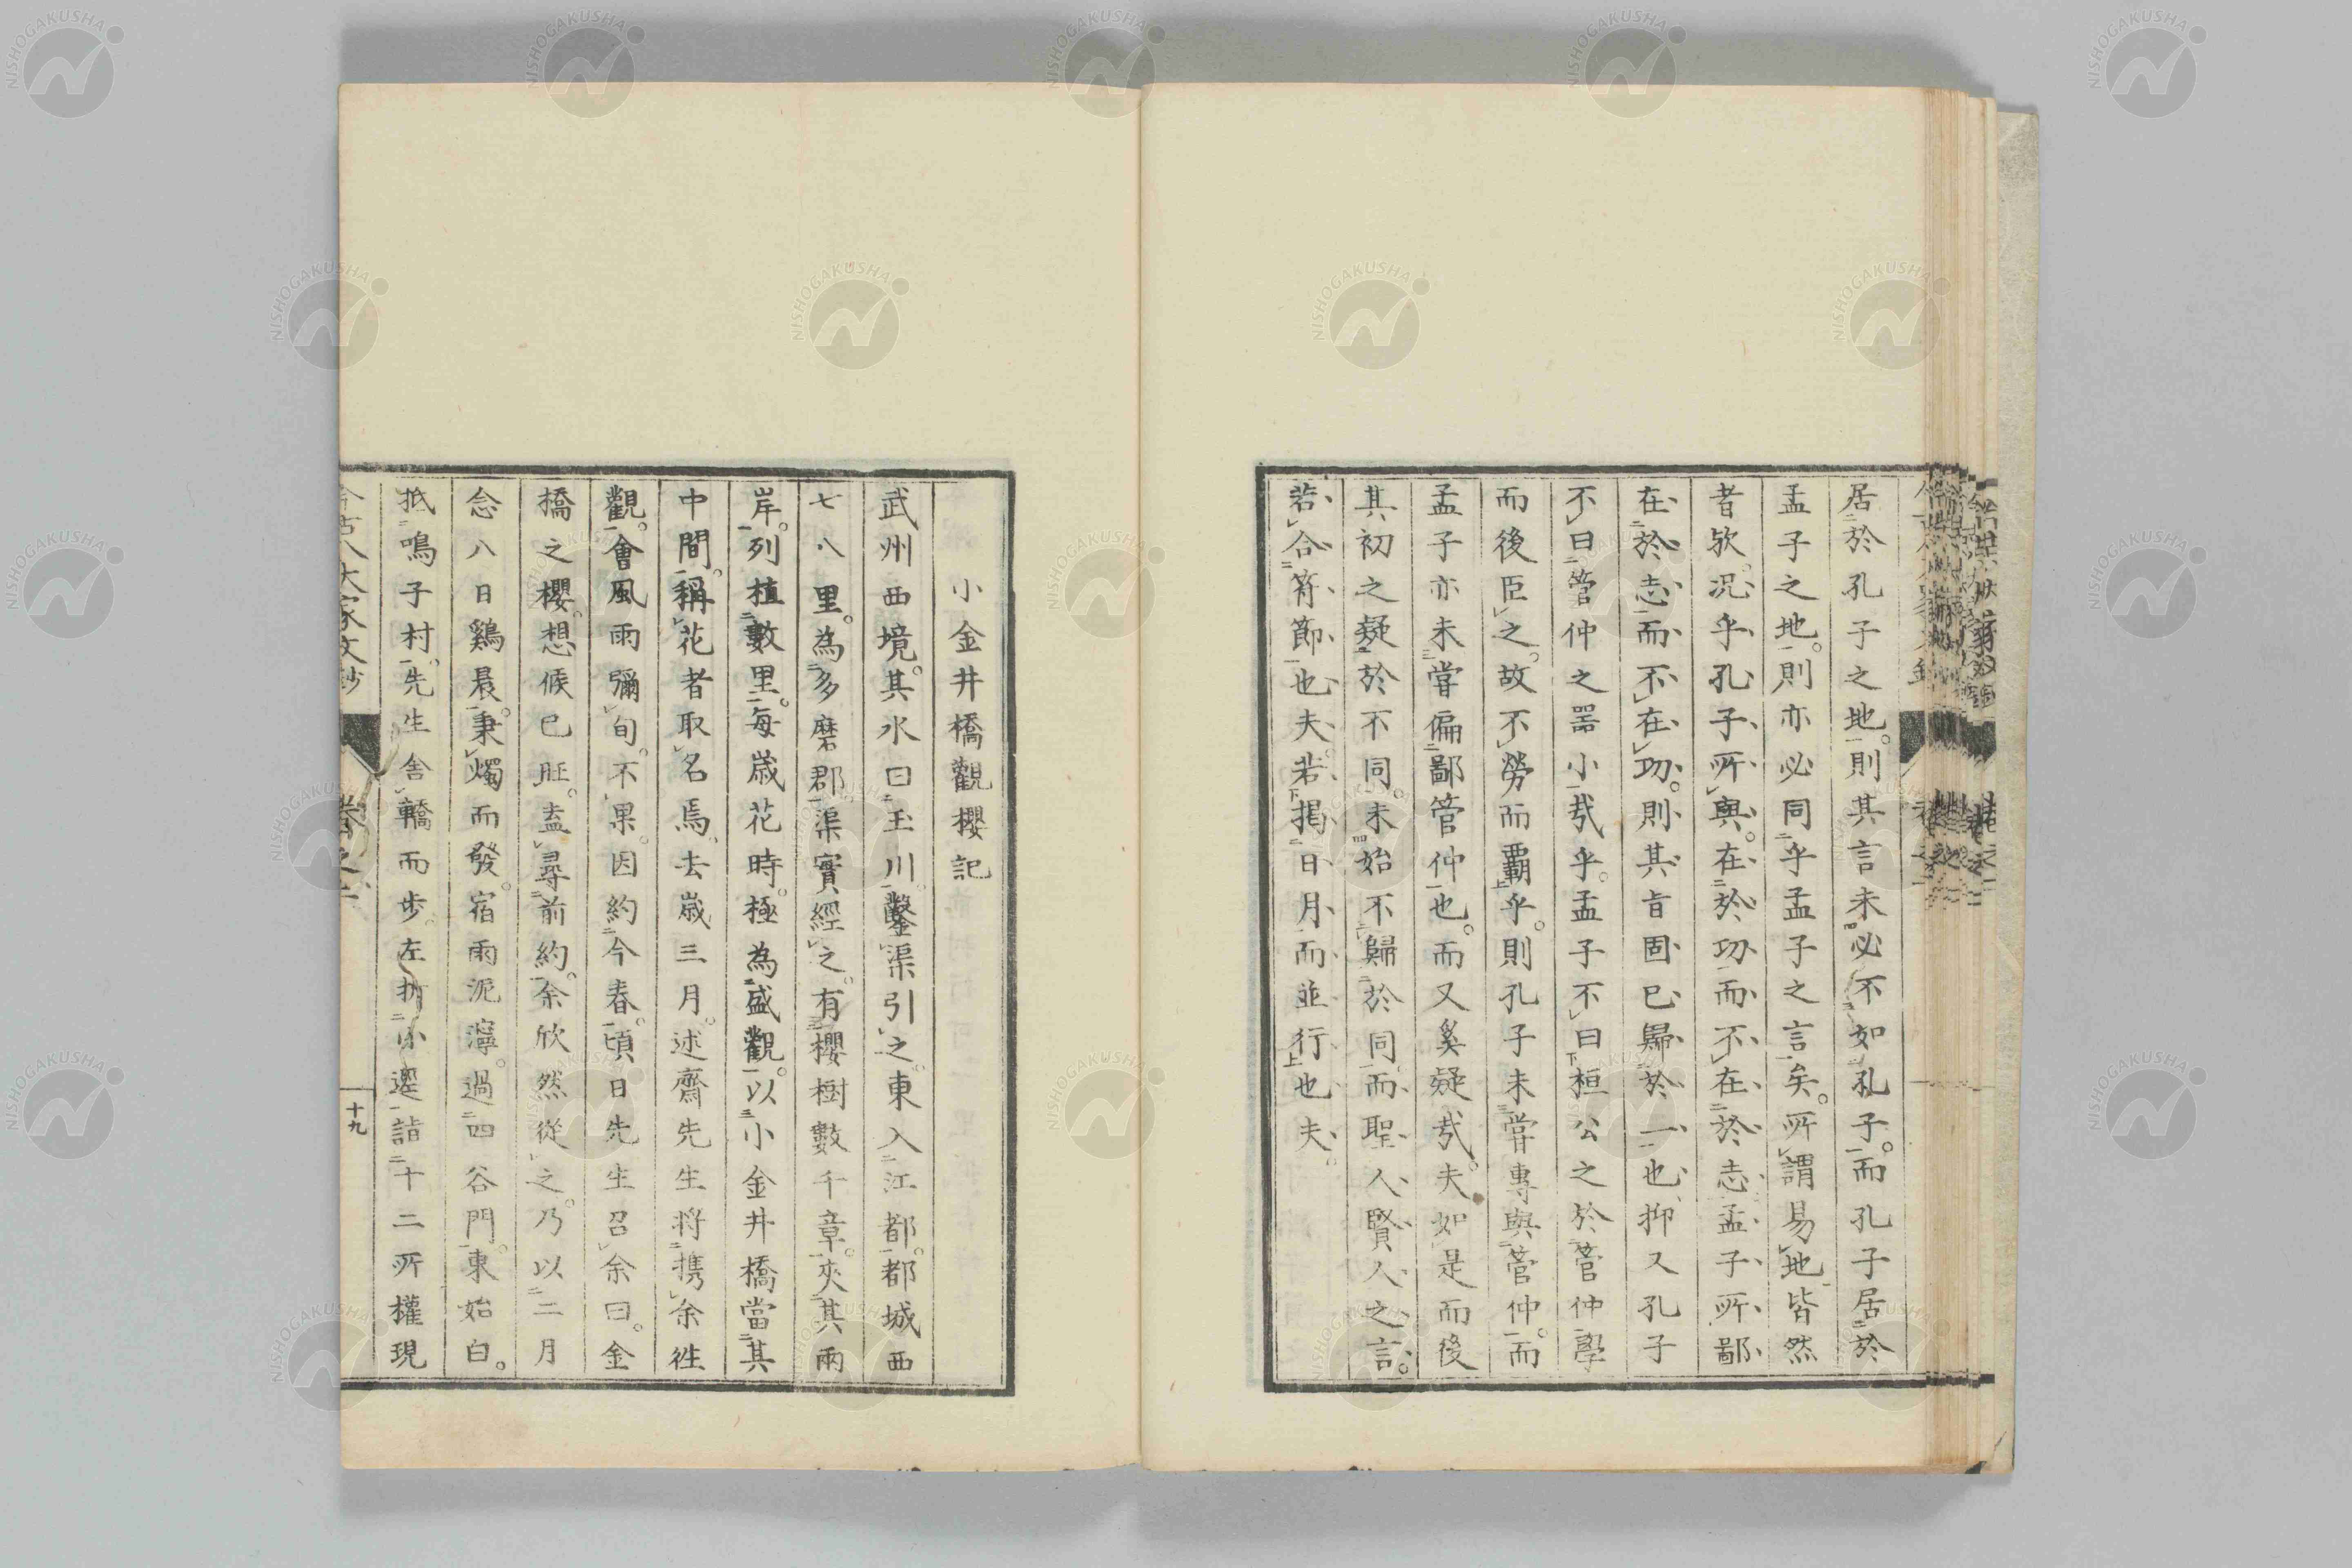 居於孔子之地。則其言未必不如孔子。而孔子居於
孟子之地。則亦必同乎孟子之言矣。所謂易地皆然
者歟。況乎孔子所與。在於功而不在於志。孟子所鄙
在於志而不在功。則其旨固已歸於一也。抑又孔子
不曰管仲之器小哉乎。孟子不曰桓公之於管仲學
而後臣之。故不勞而覇乎。則孔子未嘗專與管仲。而
孟子亦未嘗偏鄙管仲也。而又奚疑哉。夫如是而後
其初之疑於不同。未始不歸於同。而聖人賢人之言。
若合符節也夫。若揭日月而並行也夫。
小金井橋觀櫻記
武州西境。其水曰玉川。鑿渠引之。東入江都。都城西
七八里。為多磨郡。渠實經之。有櫻樹數千章。夾其兩
岸。列植數里。每歲花時。極為盛觀。以小金井橋當其
中間。稱花者取名焉。去歲三月。述齋先生將携余往
觀。會風雨彌旬。不果。因約今春。頃日先生召余曰。金
橋之櫻。想候已旺。盍尋前約。余欣然從之。乃以二月
念八日鷄晨。秉燭而發。宿雨泥濘。過四谷門。東始白。
抵鳴子村。先生舍轎而步。左折小逕。詣十二所權現
今古八大家文鈔
卷之二
十九
NISHOGAKUSHA